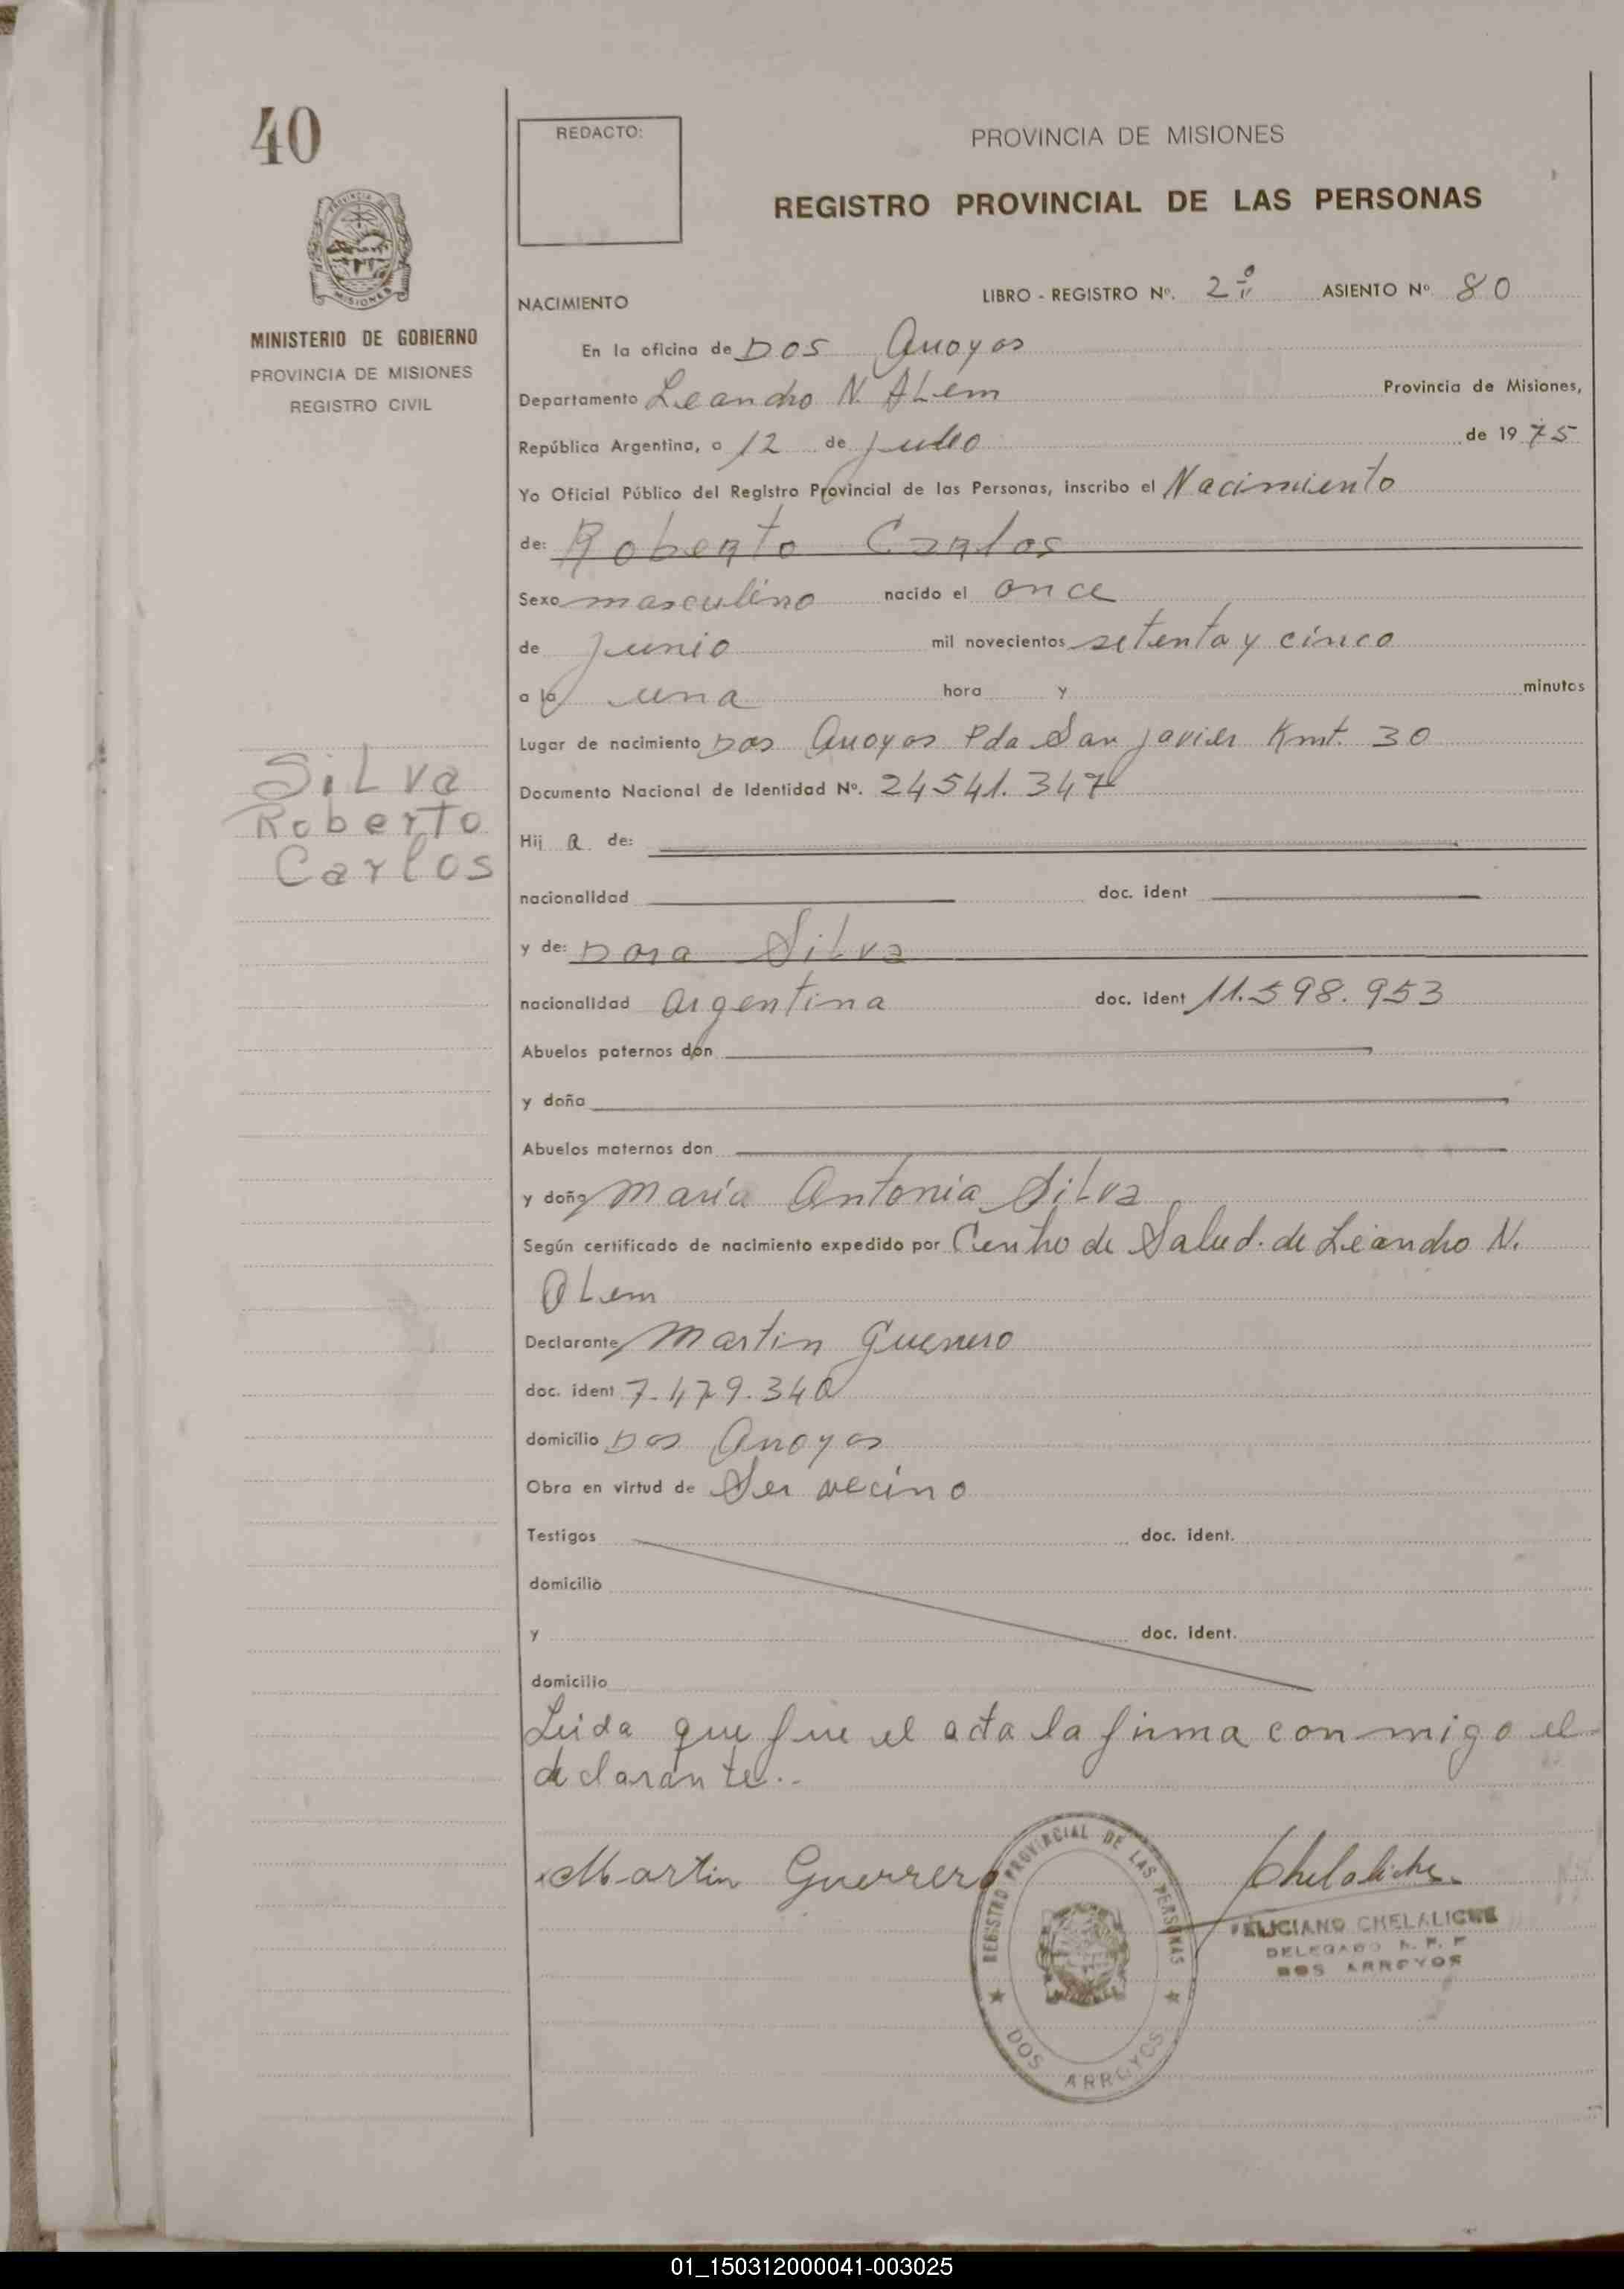 40
REDACTO:
PROVINCIA DE MISIONES
REGISTRO PROVINCIAL DE LAS PERSONAS
MISIONES
MINISTERIO DE GOBIERNO
PROVINCIA DE MISIONES
REGISTRO CIVIL
NACIMIENTO LIBRO - REGISTRO Nº. 2º ASIENTO Nº 80
En la oficina de Dos Arroyos
Departamento Leandro N. ALem Provincia de Misiones,
República Argentina, a 12 de Julio de 1975
Yo Oficial Público del Registro Provincial de las Personas, inscribo el Nacimiento
de: Roberto Carlos
Sexo masculino nacido el once
de Junio mil novecientos setenta y cinco
a la una hora y minutos
Lugar de nacimiento Dos Arroyos Pda San Javier Kmt. 30
Silva
Roberto
Carlos
Documento Nacional de Identidad Nº. 24541.347
Hij a de:
nacionalidad doc. ident
y de: Dora Silva
nacionalidad argentina doc. ident 11.598.953
Abuelos paternos don
y doña
Abuelos maternos don
y doña María Antonia Silva
Según certificado de nacimiento expedido por Centro de Salud. de Leandro N.
ALem
Declarante Martin Guerrero
doc. ident 7.479.340
domicilio Dos Arroyos
Obra en virtud de Ser vecino
Testigos doc. ident.
domicilio
y doc. ident.
domicilio
Leida que fue el acta la firma con migo el
declarante.-
Martin Guerrero
Chelaliche
REGISTRO PROVINCIAL DE LAS PERSONAS
DOS ARROYOS
FELICIANO CHELALICHE
DELEGADO R. P. P
DOS ARROYOS
01_150312000041-003025